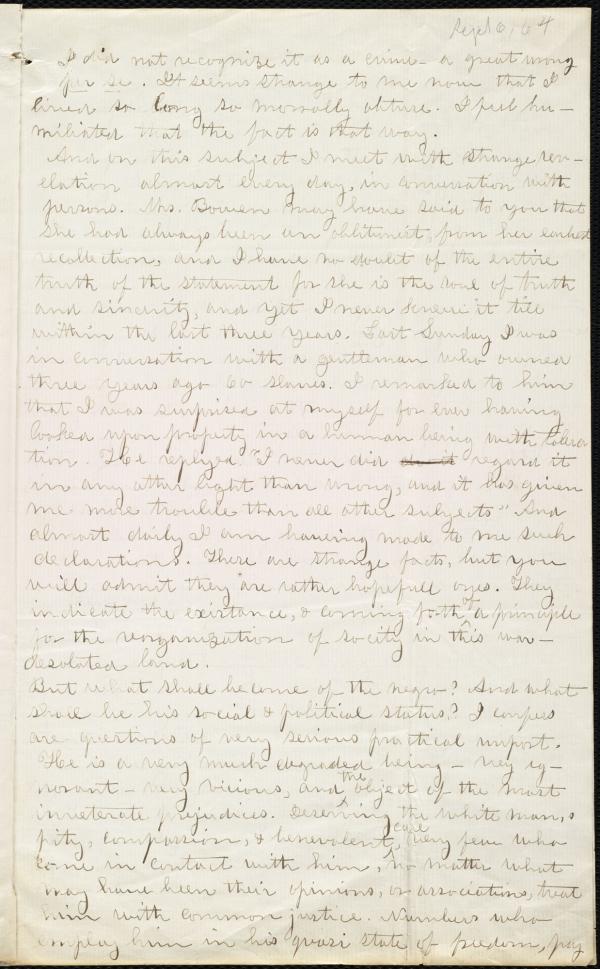 Sept 6, 64
I did not recognize it as a crime - a great wrong
per se. It seems strange to me now that I
lived so long so morrally obture. I feel hu-
miliated that the fact is that way.
And on this subject I meet with strange rev-
elation almost every day, in conversation with
persons. Mrs. Bowen may have said to you that
she had always been an oblitionist, from her earliest
recollection, and I have no doubt of the entire
truth of the statement for she is the soul of truth
and sincerity, and yet I never knew it till
within the last three years. Last Sunday I was
in conversation with a gentleman who owned
three years ago 60 slaves. I remarked to him
that I was surprised at myself for ever having
looked upon property in a human being with tolera
tion. He replyed "I never did regard it
in any other light than wrong, and it has given
me more trouble than all other subjects" And
almost daily I am having made to me such
declarations. These are strange facts, but you
will admit they are rather hopefull ones. They
indicate the existance, & coming forth of a principle
for the reorganization of socity in this war-
desolated land.
But what shall become of the negro? And what
shall be his social & political status? I confess
are questions of very serious practical import.
He is a very much degraded being - very ig-
norant - very vicious, and the object of the most
inveterate prejudices. Deserving the white man,s
pity, compassion, & benevolent care, very few who
come in contact with him, no matter what
may have been their opinions, or associations, treat
him with common justice. Numbers who
employ him in his quasi state of freedom, pay